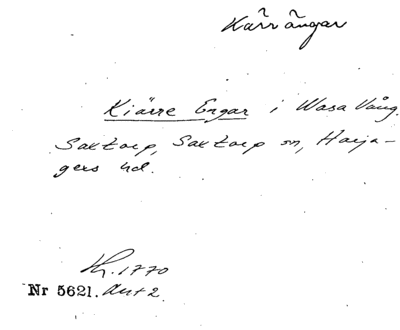 Kärrängar
Kiärre Engar i Wasa Vång.
Saxtorp, Saxtorp sn, Harja-
gers hd.
Lh. 1770
Nr 5621. Akt 2.